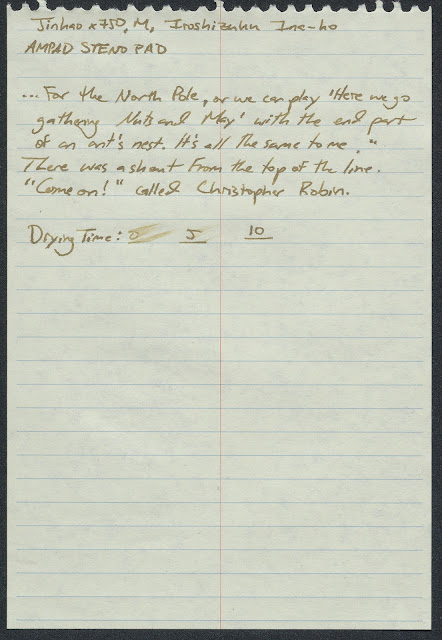 Jinhao x750, M, Iroshizuku Ina-ho
AMPAD STENO PAD
... For the North Pole, or we can play 'Here we go
gathering Nuts and May' with the end part
of an ant's nest. It's all the same to me."
There was a shout from the top of the line.
"Come on!" called Christopher Robin.
Drying Time: 0 5 10